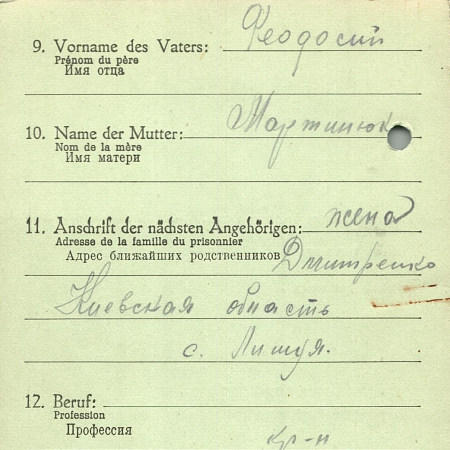 9. Vorname des Vaters: Феодосий
Prénom du père
Имя отца
10. Name der Mutter: Мартинюк
Nom de la mère
Имя матери
11. Anschrift der nächsten Angehörigen: жена
Adresse de la famille du prisonnier
Адрес ближайших родственников Дмитренко
Киевская область
с.
12. Beruf:
Profession
Профессия
кр-н